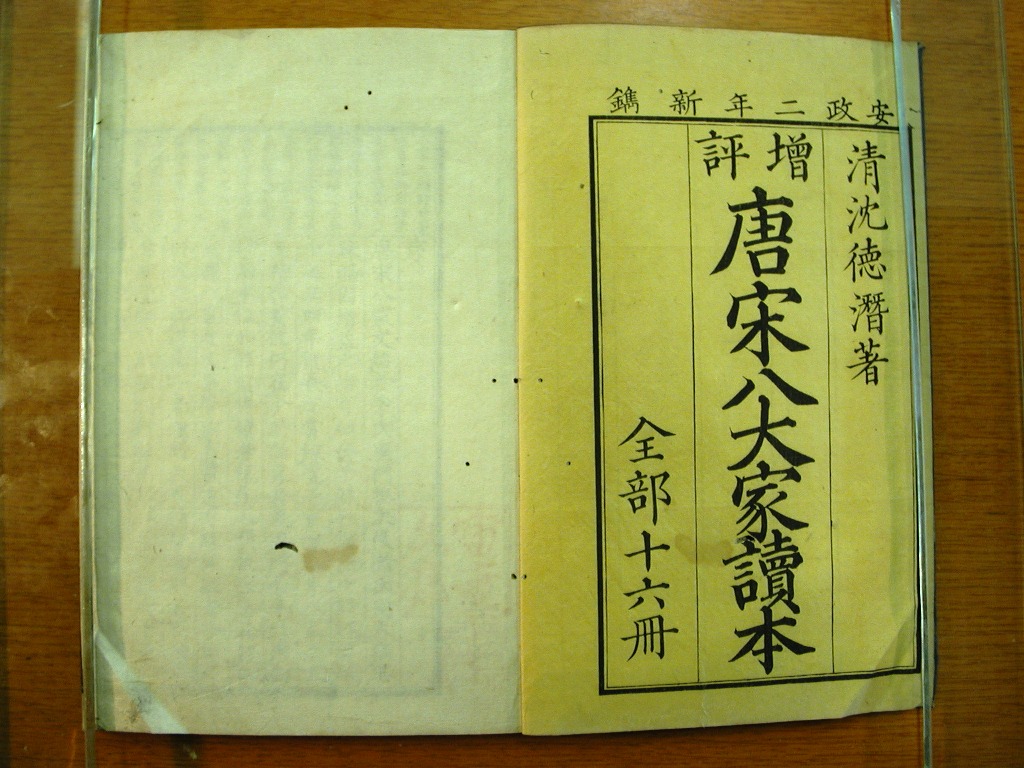 安政二年新鐫
清沈德潛著
增評
唐宋八大家讀本
全部十六冊